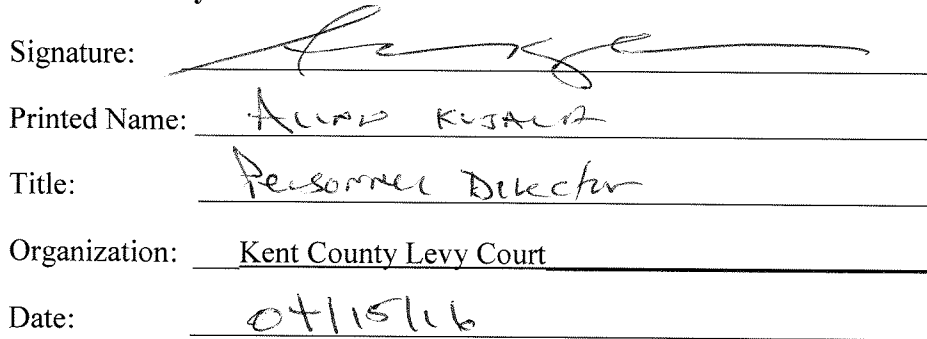 Signature:
Printed Name: Allan Kujala
Title: Personnel Director
Organization: Kent County Levy Court
Date: 04/15/16